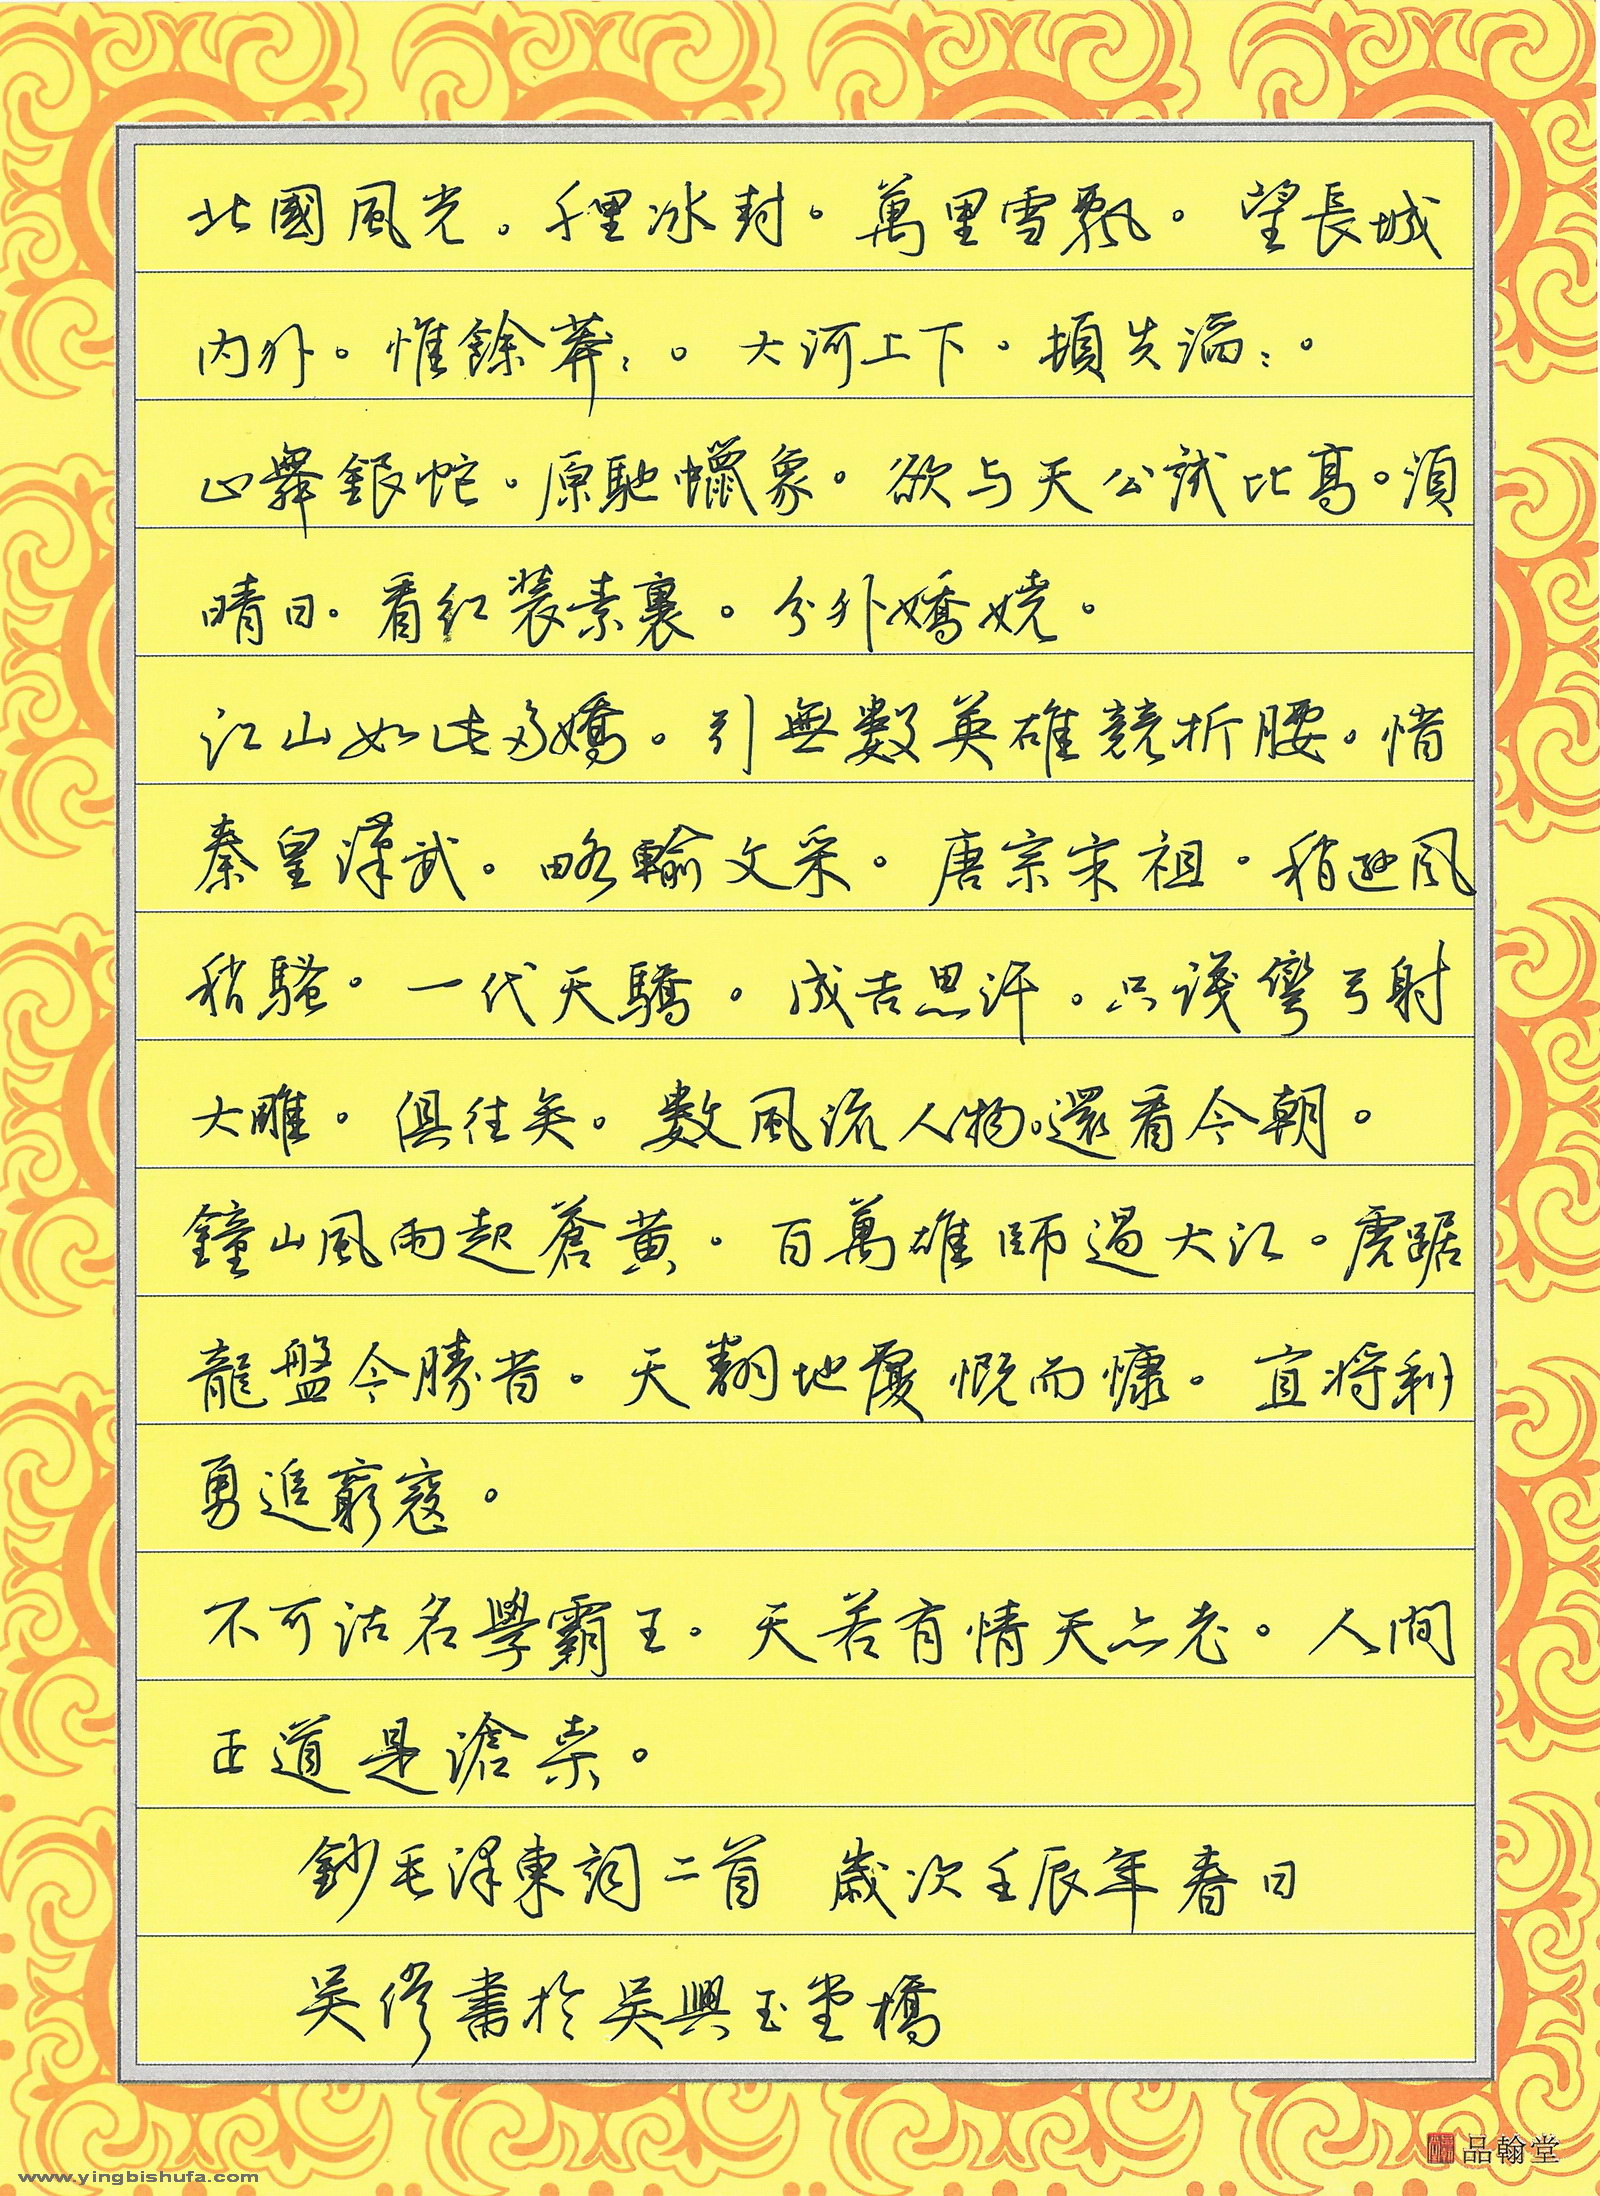 北國風光。千里冰封。萬里雪飄。望長城
内外。惟餘莽：。大河上下。頓失滔：。
山舞銀蛇。原馳蠟象。欲与天公試比高。須
晴日。看紅装素裹。分外嬌嬈。
江山如此多嬌。引無數英雄競折腰。惜
秦皇漢武。略輸文采。唐宗宋祖。稍遜風
稍騷。一代天驕。成吉思汗。只識彎弓射
大雕。俱往矣。數風流人物。還看今朝。
鐘山風雨起蒼黄。百萬雄師過大江。虎踞
龍盤今勝昔。天翻地覆慨而慷。宜將剩
勇追窮寇。
不可沽名學霸王。天若有情天亦老。人間
正道是滄桑。
鈔毛澤東詞二首 歲次壬辰年春日
吴修書於吴興玉堂橋
www.yingbishufa.com
品翰堂